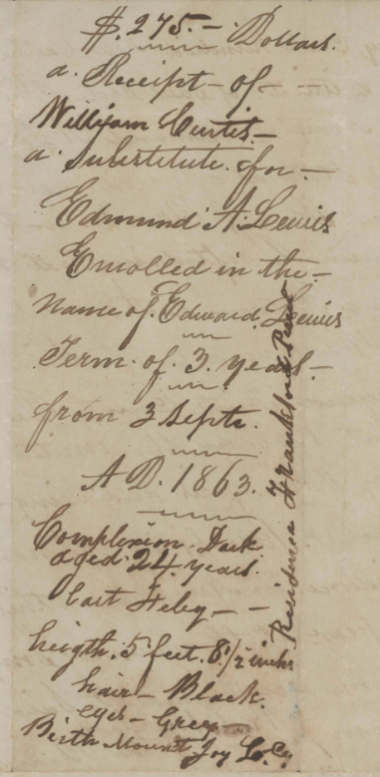 $.275.– Dollars.
a. Receipt – of –
William Curtis –
a. Substitute. for. –
Edmund A. Lewis
Enrolled in the –
name of. Edward. Lewis
Term. of. 3. years. –
from 3 Septr.
A D. 1863.
Complexion. Dark.
aged. 24. years.
heigth. 5 feet. 8 1/2 inchs
hair – Black.
eyes – Grey –
Birth Mount Joy
Residence Frankford